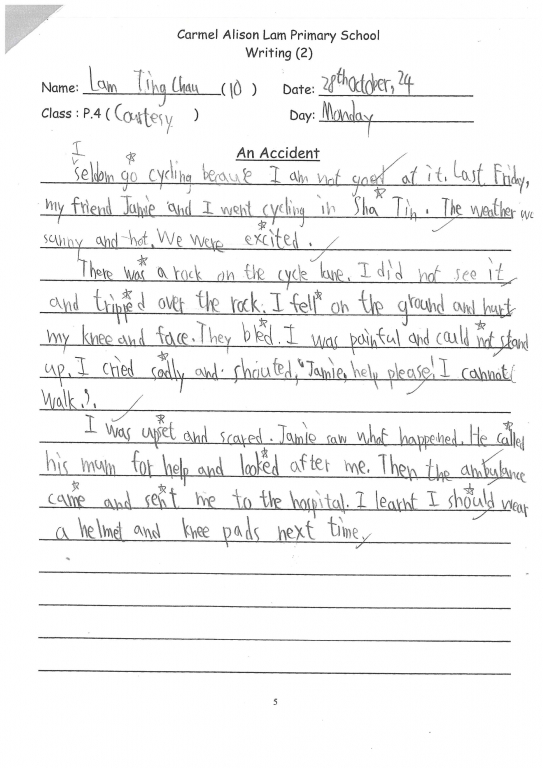 Carmel Alison Lam Primary School
Writing (2)
Name: Lam Ting Chau (10)
Date: 28th October, 24
Class : P.4 (Courtesy)
Day: Monday
An Accident
I
seldom go cycling because I am not good at it. Last Friday,
my friend Jamie and I went cycling in Sha Tin. The weather wa
sunny and hot. We were excited.
There was a rock on the cycle lane. I did not see it
and tripped over the rock. I fell on the ground and hurt
my knee and face. They bled. I was painful and could not stand
up. I cried sadly and shouted, "Jamie, help please! I cannot
walk."
I was upset and scared. Jamie saw what happened. He called
his mum for help and looked after me. Then the ambulance
came and sent me to the hospital. I learnt I should wear
a helmet and knee pads next time.
5